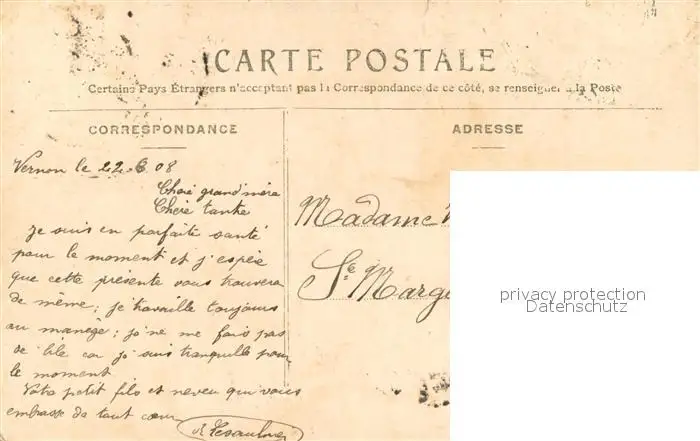 CARTE POSTALE
Certains Pays Étrangers n'acceptant pas la Correspondance de ce côté, se renseigner à la Poste
CORRESPONDANCE
Vernon le 22.6 08
Chère grand'mère
Chère tante
je suis en parfaite santé
pour le moment et j'espère
que cette présente vous trouvera
de même; je travaille toujours
au manège; je ne me fais pas
de bile car je suis tranquille pour
le moment
Votre petit fils et neveu qui vous
embrasse de tout cœur
ADRESSE
Madame
Ste Marg
privacy protection
Datenschutz